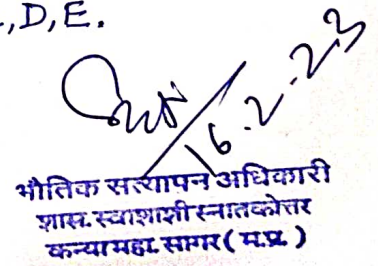 .,D,E.
16.2.23
भौतिक सत्यापन अधिकारी
शास. स्वाशाशी स्नातकोत्तर
कन्या महा. सागर ( म.प्र. )